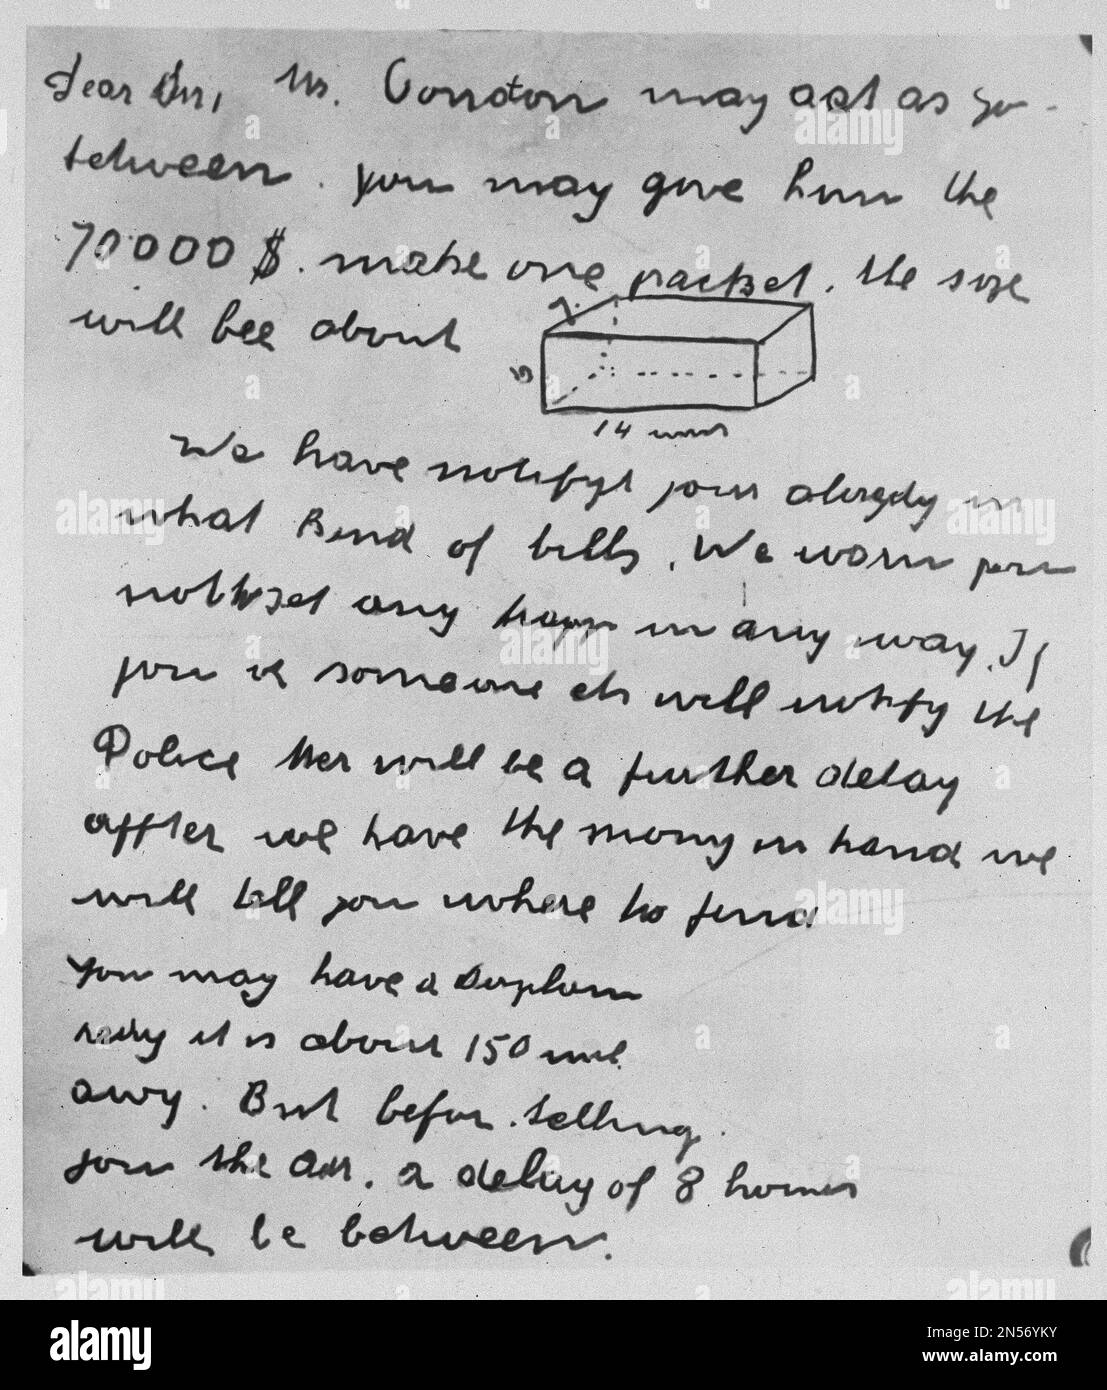 dear Sir, Mr. Condon may act as go-
between. you may give him the
70000 $. make one packet. the size
will bee about
7
6
14 inches
We have notifyt your allredy in
what kind of bills. We warn you
not to set any trapp in any way. If
you or someone els will notify the
Police ther will be a further delay
affter we have the mony in hand we
will tell you where to find
You may have a airplane
redy it is about 150 mil
awy. But befor telling
you the adr. a delay of 8 houers
will be between.
alamy
Image ID: 2N56YKY
www.alamy.com